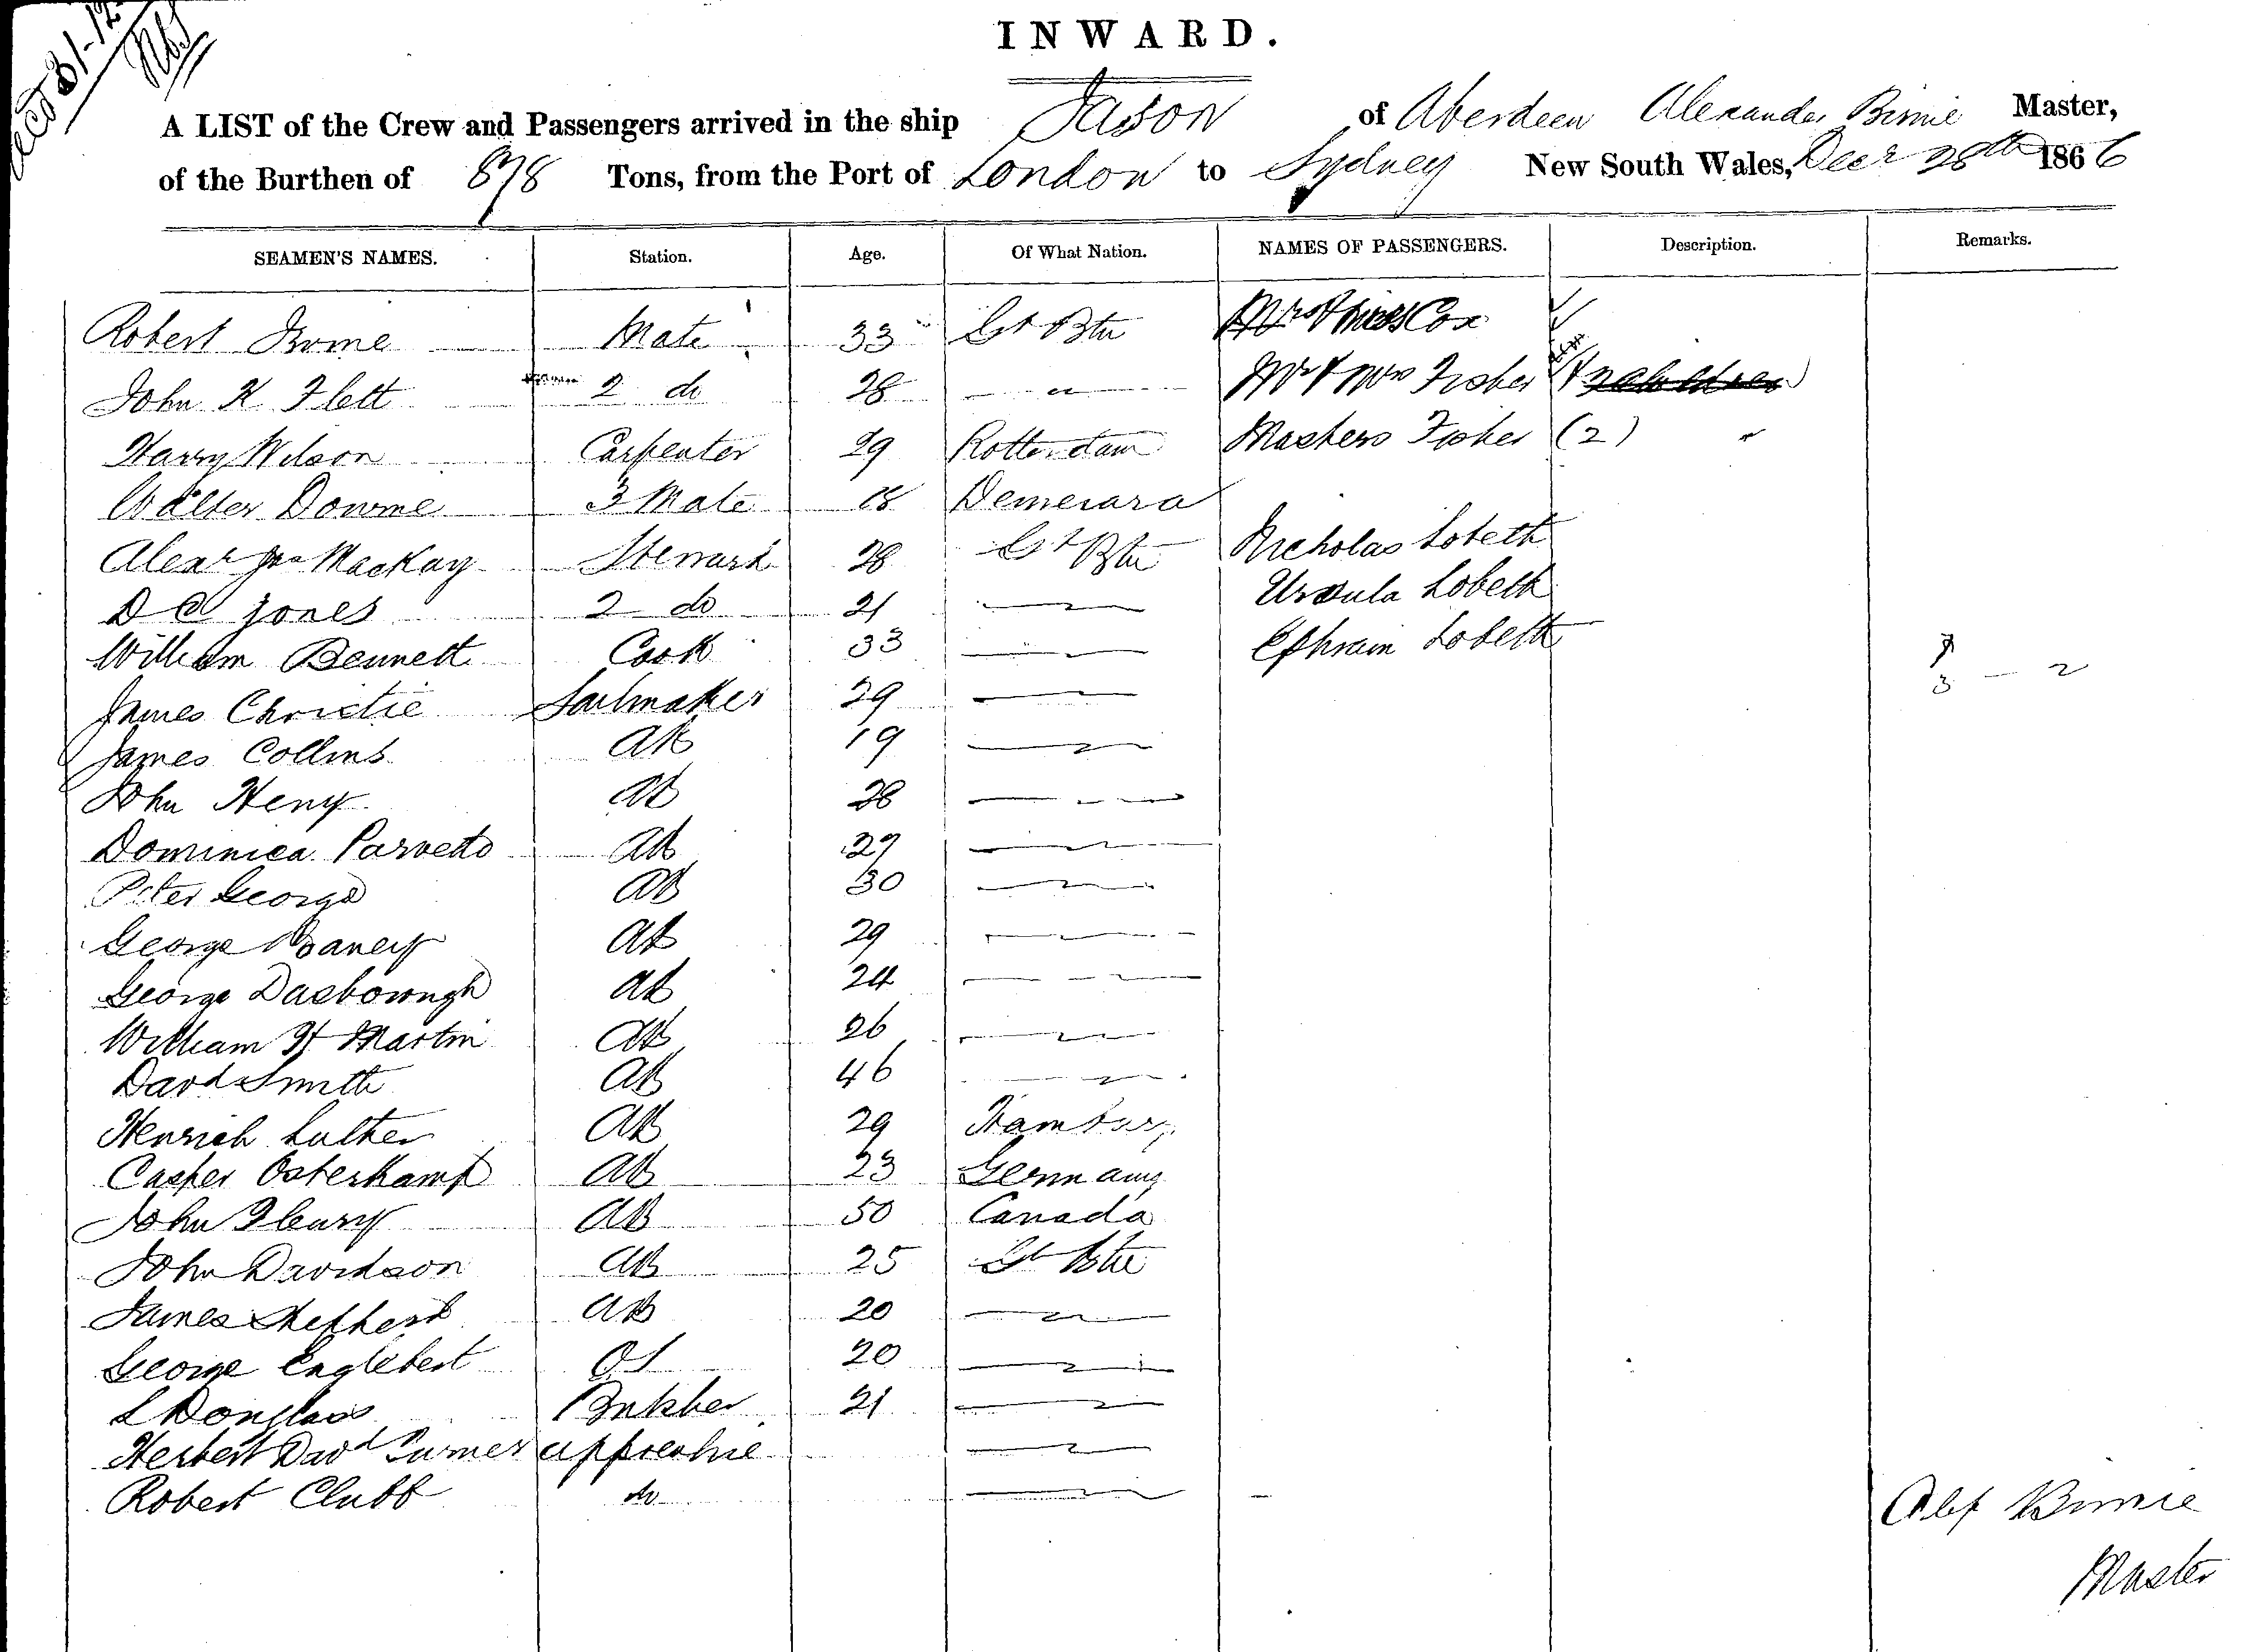 INWARD.
A LIST of the Crew and Passengers arrived in the ship Jason of Aberdeen Alexander Birnie Master,
of the Burthen of 878 Tons, from the Port of London to Sydney New South Wales, Decr 28th 1866
SEAMEN'S NAMES. Station. Age. Of What Nation. NAMES OF PASSENGERS. Description. Remarks.
Robert Mate 33 Gt Btn Cox
John K Flett 2 do 28 " Mr & Mrs Fisher
Harry Wilson Carpenter 29 Rotterdam Masters Fisher (2)
Walter Downie 3 Mate 18 Demerara
Alexr MacKay Steward 28 Gt Btn Nicholas Lobeth
D C Jones 2 do 21 Ursula Lobeth
William Bennett Cook 33 Ephraim Lobeth
James Christie Sailmaker 29 3 — 2
James Collins AB 19
John Henry AB 28
Dominica Parvetto AB 29
Peter George AB 30
George AB 29
George Dasborough AB 24
William H Martin AB 26
David Smith AB 46
Henrich Luther AB 29 Hamburg
Casper Osterkamp AB 23 Germany
John Fleury AB 50 Canada
John Davidson AB 25 Gt Btn
James Shepherd AB 20
George Englebert OS 20
L Douglass 21
Herbert Davd Turner apprentice
Robert Clubb do
Alex Birnie
Master